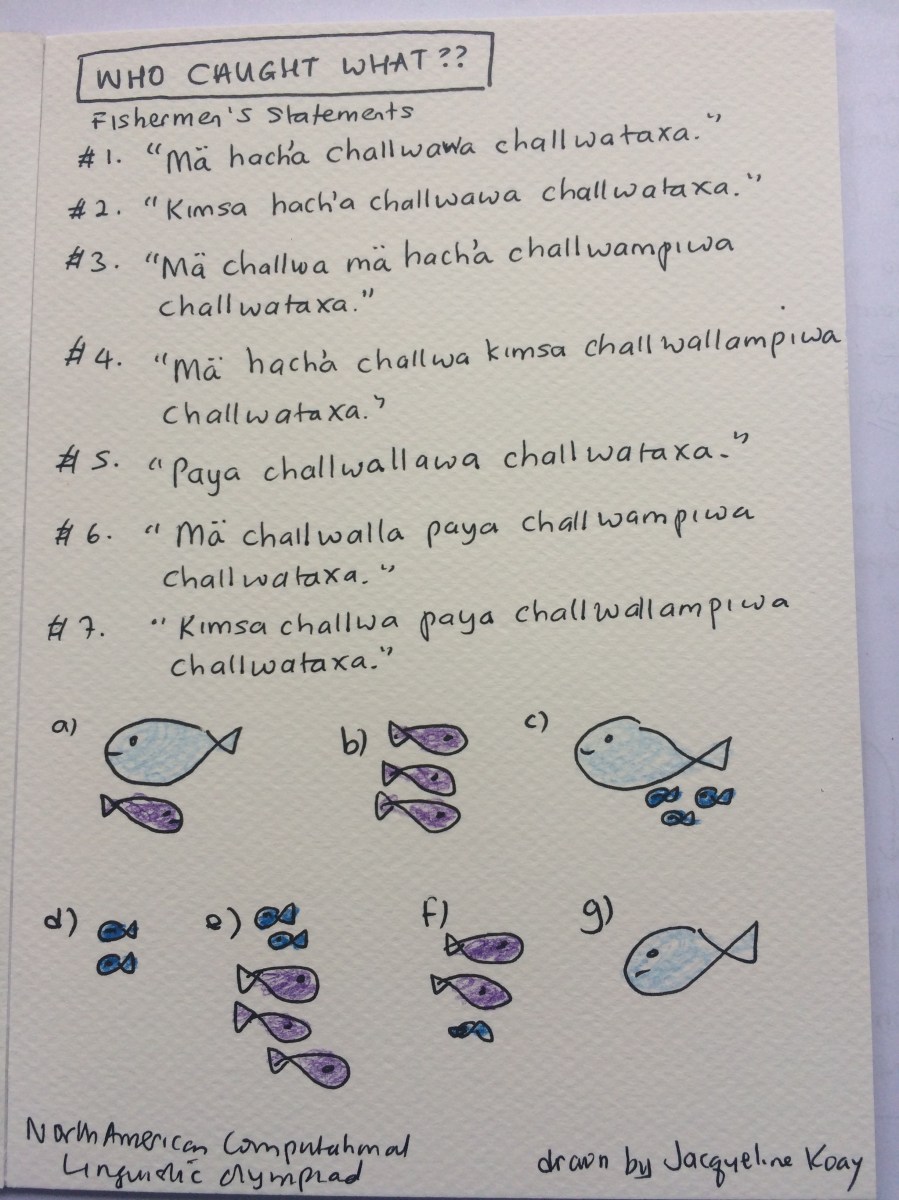 WHO CAUGHT WHAT??
Fishermen's Statements
#1. "Mä hach'a challwawa challwataxa."
#2. "Kimsa hach'a challwawa challwataxa."
#3. "Mä challwa mä hach'a challwampiwa
challwataxa."
#4. "Mä hach'a challwa kimsa challwallampiwa
challwataxa."
#5. "Paya challwallawa challwataxa."
#6. "Mä challwalla paya challwampiwa
challwataxa."
#7. "Kimsa challwa paya challwallampiwa
challwataxa."
a) b) c)
d) e) f) g)
North American Computational
Linguistic Olympiad
drawn by Jacqueline Koay